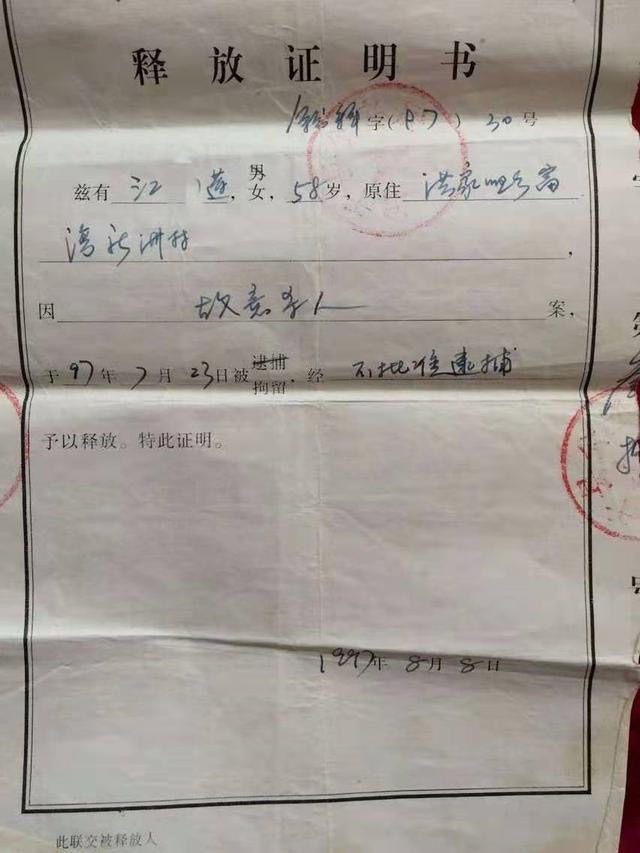 释放证明书
释字(97)30号
兹有江莲,男女,58岁,原住洪家咀乡富
湾新洲村,
因故意杀人案,
于97年7月23日被逮捕拘留,经不批准逮捕
予以释放。特此证明。
1997年8月8日
此联交被释放人